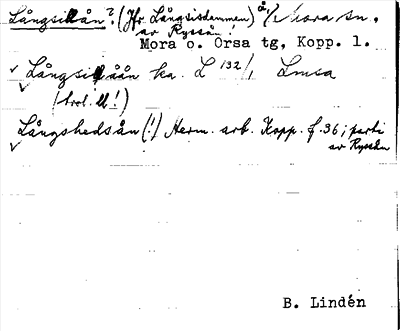 Långsillån? (Jfr Långsisdammen) å i Mora sn.
av Ryssån!
Mora o. Orsa tg, Kopp. l.
Långsillån ka. L 132/1 Lmsa
(trol. ll!)
Långshedsån (!) Herm. arb. Kopp. f. 36; parti
av Ryssån
B. Lindén